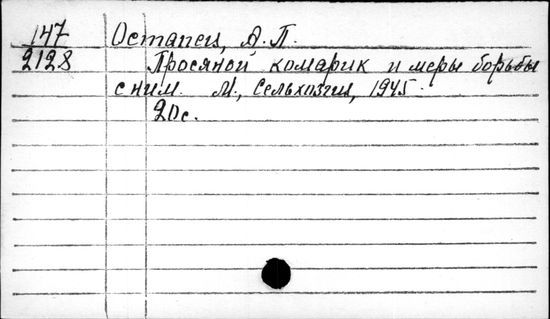 147 Остапец, А.П.
2128 Просяной комарик и меры борьбы
с ним. М., Сельхозгиз, 1945.
20с.